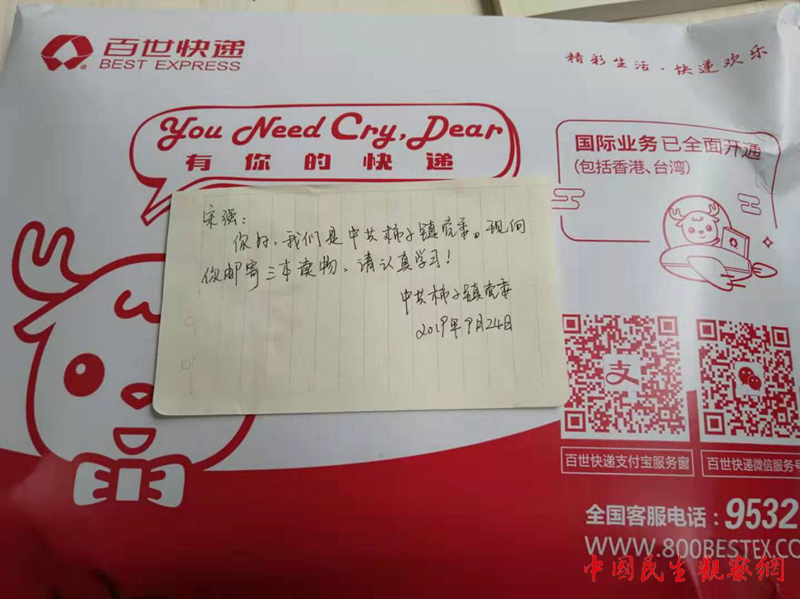 百世快递
BEST EXPRESS
精彩生活·快递欢乐
You Need Cry, Dear
有你的快递
国际业务已全面开通
(包括香港、台湾)
宋强：
你好，我们是中共柿子镇党委。现向
你邮寄三本读物，请认真学习！
中共柿子镇党委
2019年9月24日
支
百世快递支付宝服务窗
百世快递微信服务号
全国客服电话：9532
WWW.800BESTEX.CO
中國民生觀察網